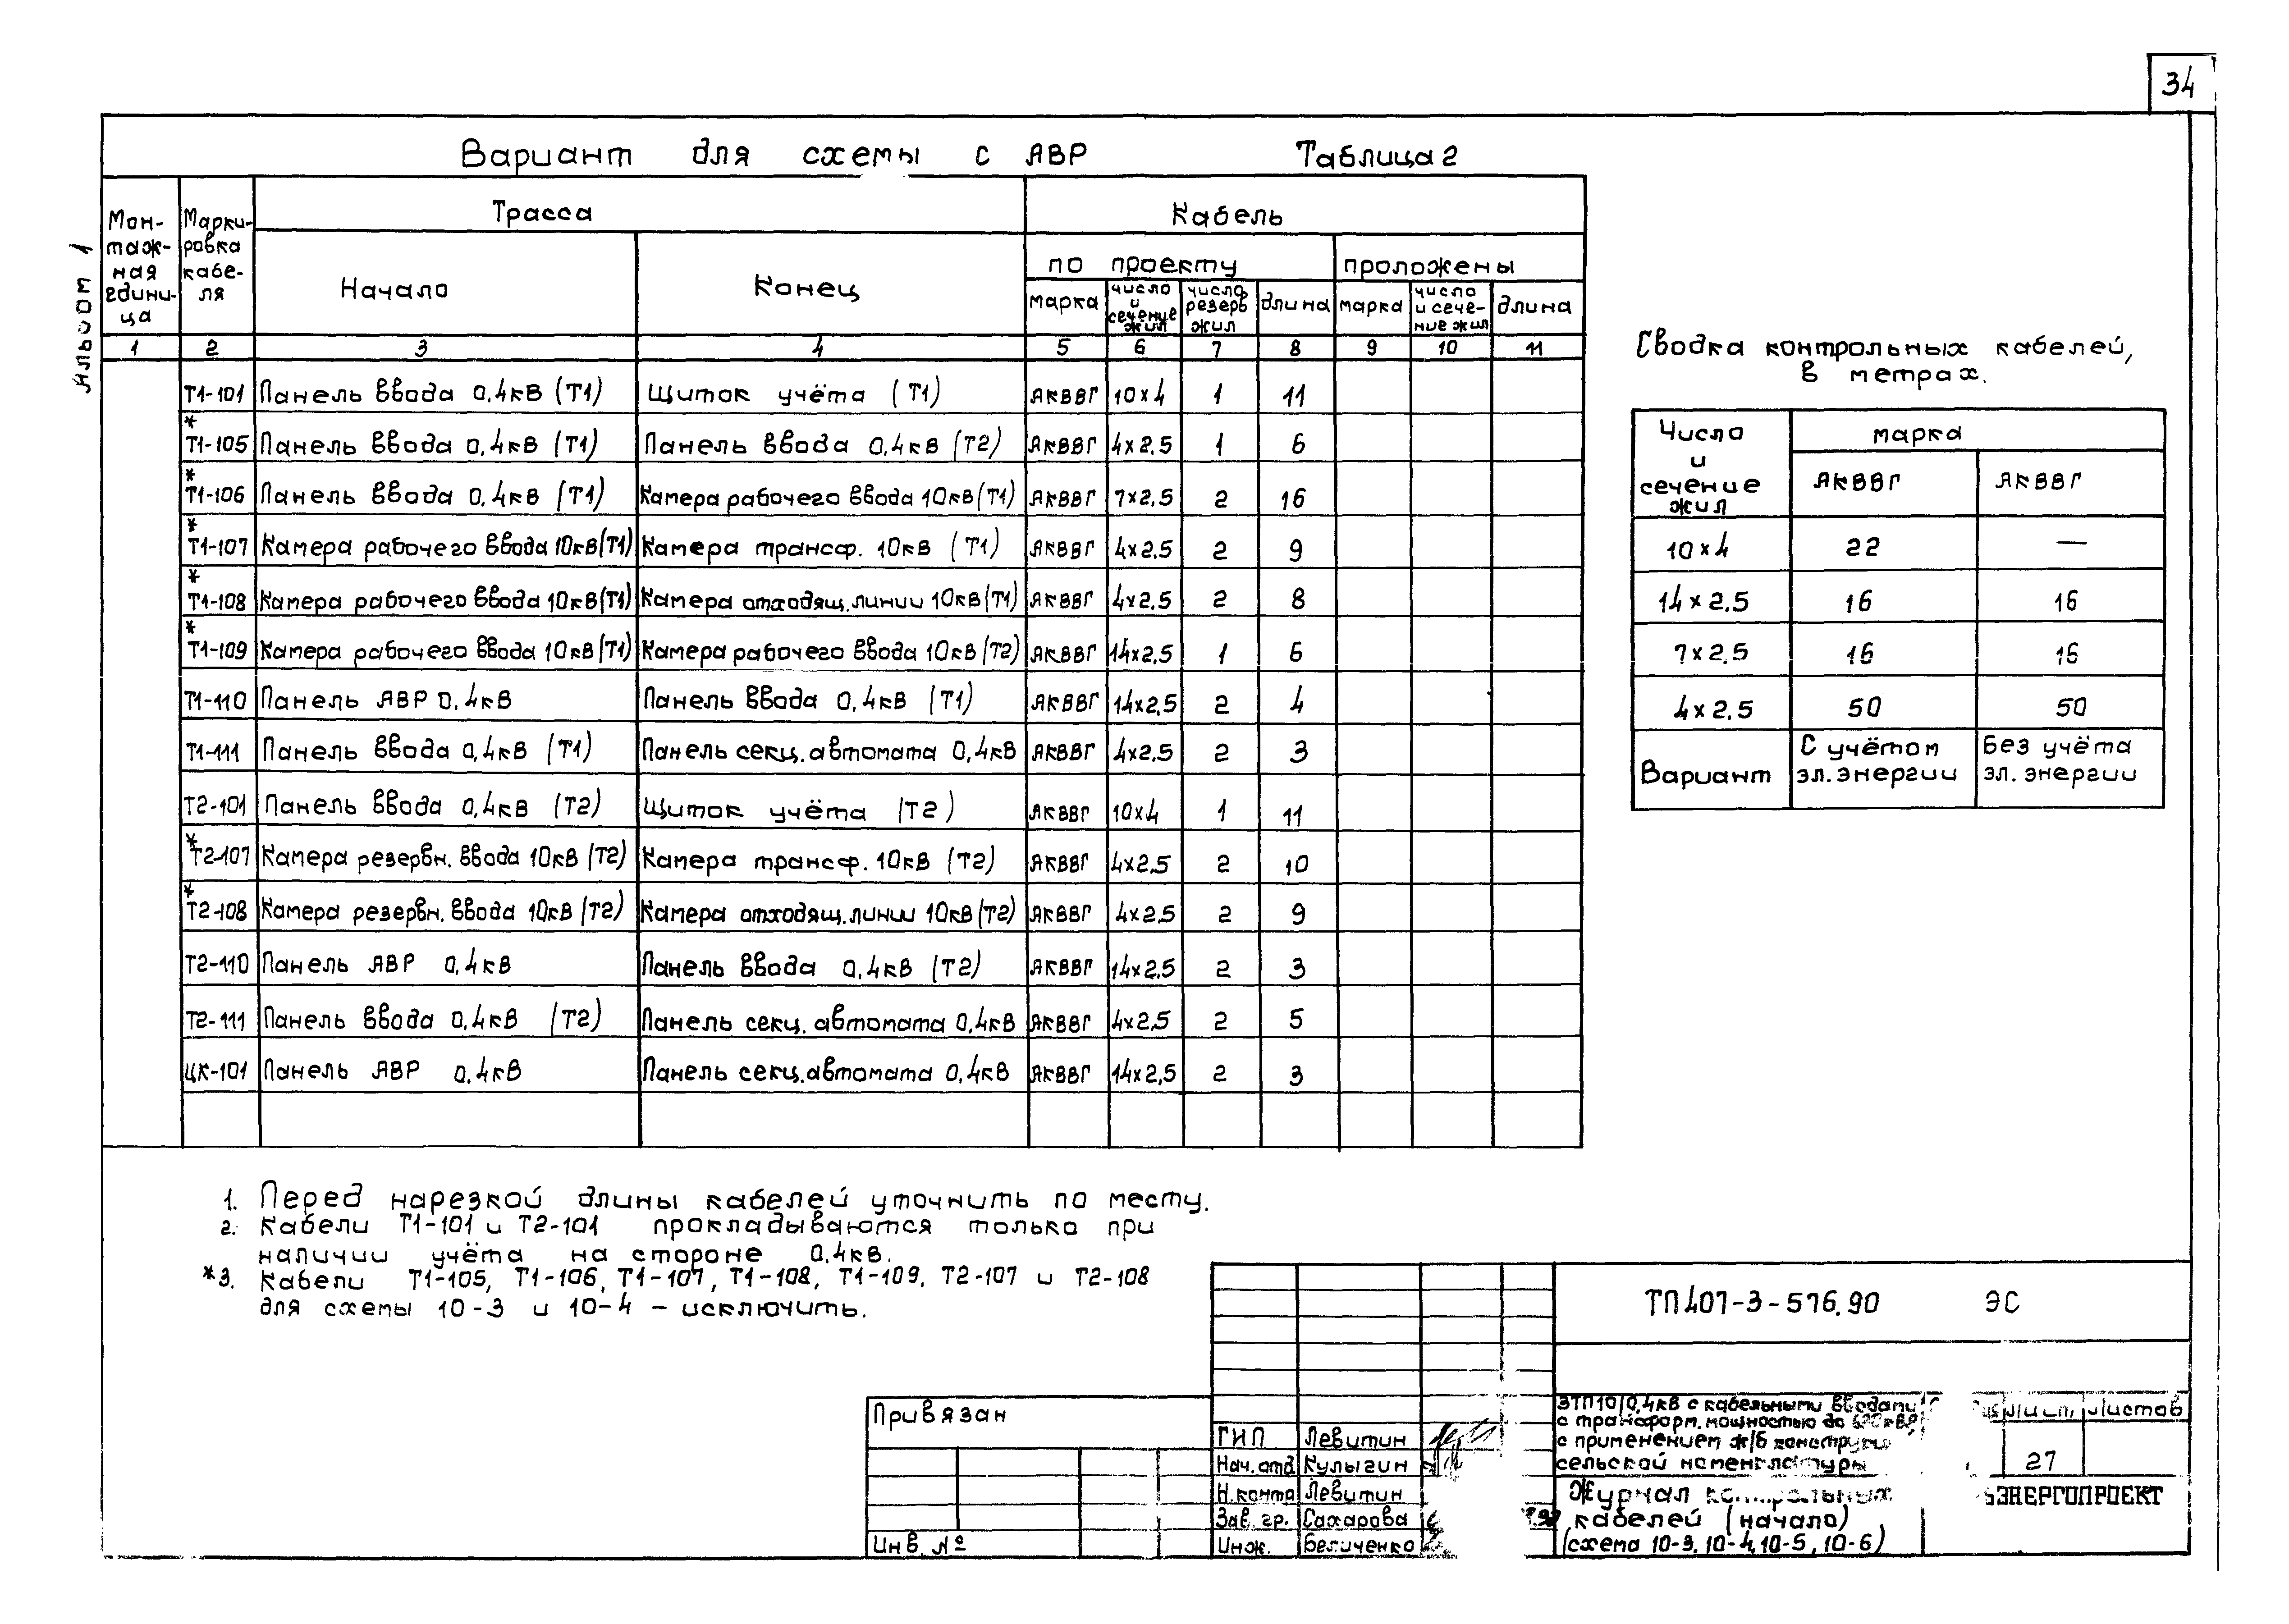 34
Альбом 1
Вариант для схемы с АВР Таблица 2
Монтажная единица
Маркировка кабеля
Трасса
Кабель
Начало
Конец
по проекту
проложены
марка
число и сечение жил
число резерв жил
длина
марка
число и сечение жил
длина
1 2 3 4 5 6 7 8 9 10 11
Т1-101 Панель ввода 0,4кВ (Т1) Щиток учёта (Т1) АКВВГ 10×4 1 11
* Т1-105 Панель ввода 0,4кВ (Т1) Панель ввода 0,4кВ (Т2) АКВВГ 4×2,5 1 6
* Т1-106 Панель ввода 0,4кВ (Т1) Камера рабочего ввода 10кВ (Т1) АКВВГ 7×2,5 2 16
* Т1-107 Камера рабочего ввода 10кВ (Т1) Камера трансф. 10кВ (Т1) АКВВГ 4×2,5 2 9
* Т1-108 Камера рабочего ввода 10кВ (Т1) Камера отходящ. линии 10кВ (Т1) АКВВГ 4×2,5 2 8
* Т1-109 Камера рабочего ввода 10кВ (Т1) Камера рабочего ввода 10кВ (Т2) АКВВГ 14×2,5 1 6
Т1-110 Панель АВР 0,4кВ Панель ввода 0,4кВ (Т1) АКВВГ 14×2,5 2 4
Т1-111 Панель ввода 0,4кВ (Т1) Панель секц. автомата 0,4кВ АКВВГ 4×2,5 2 3
Т2-101 Панель ввода 0,4кВ (Т2) Щиток учёта (Т2) АКВВГ 10×4 1 11
* Т2-107 Камера резервн. ввода 10кВ (Т2) Камера трансф. 10кВ (Т2) АКВВГ 4×2,5 2 10
* Т2-108 Камера резервн. ввода 10кВ (Т2) Камера отходящ. линии 10кВ (Т2) АКВВГ 4×2,5 2 9
Т2-110 Панель АВР 0,4кВ Панель ввода 0,4кВ (Т2) АКВВГ 14×2,5 2 3
Т2-111 Панель ввода 0,4кВ (Т2) Панель секц. автомата 0,4кВ АКВВГ 4×2,5 2 5
ЦК-101 Панель АВР 0,4кВ Панель секц. автомата 0,4кВ АКВВГ 14×2,5 2 3
Сводка контрольных кабелей,
в метрах.
Число и сечение жил
марка
АКВВГ АКВВГ
10×4 22 —
14×2,5 16 16
7×2,5 16 16
4×2,5 50 50
Вариант С учётом эл. энергии Без учёта эл. энергии
1. Перед нарезкой длины кабелей уточнить по месту.
2. Кабели Т1-101 и Т2-101 прокладываются только при
наличии учёта на стороне 0,4кВ.
*3. Кабели Т1-105, Т1-106, Т1-107, Т1-108, Т1-109, Т2-107 и Т2-108
для схемы 10-3 и 10-4 – исключить.
Привязан
Инв. №
ГИП Левитин
Нач. отд. Кулыгин
Н. контр Левитин
Зав. гр. Сахарова
Инж. Величенко
ТП 407-3-576.90 ЭС
ЗТП 10/0,4кВ с кабельными вводами
с трансформ. мощностью до
с применением ж/б
сельской номенклатуры
Лист Листов
27
Журнал контрольных
кабелей (начало)
(схема 10-3, 10-4, 10-5, 10-6)
ЭНЕРГОПРОЕКТ